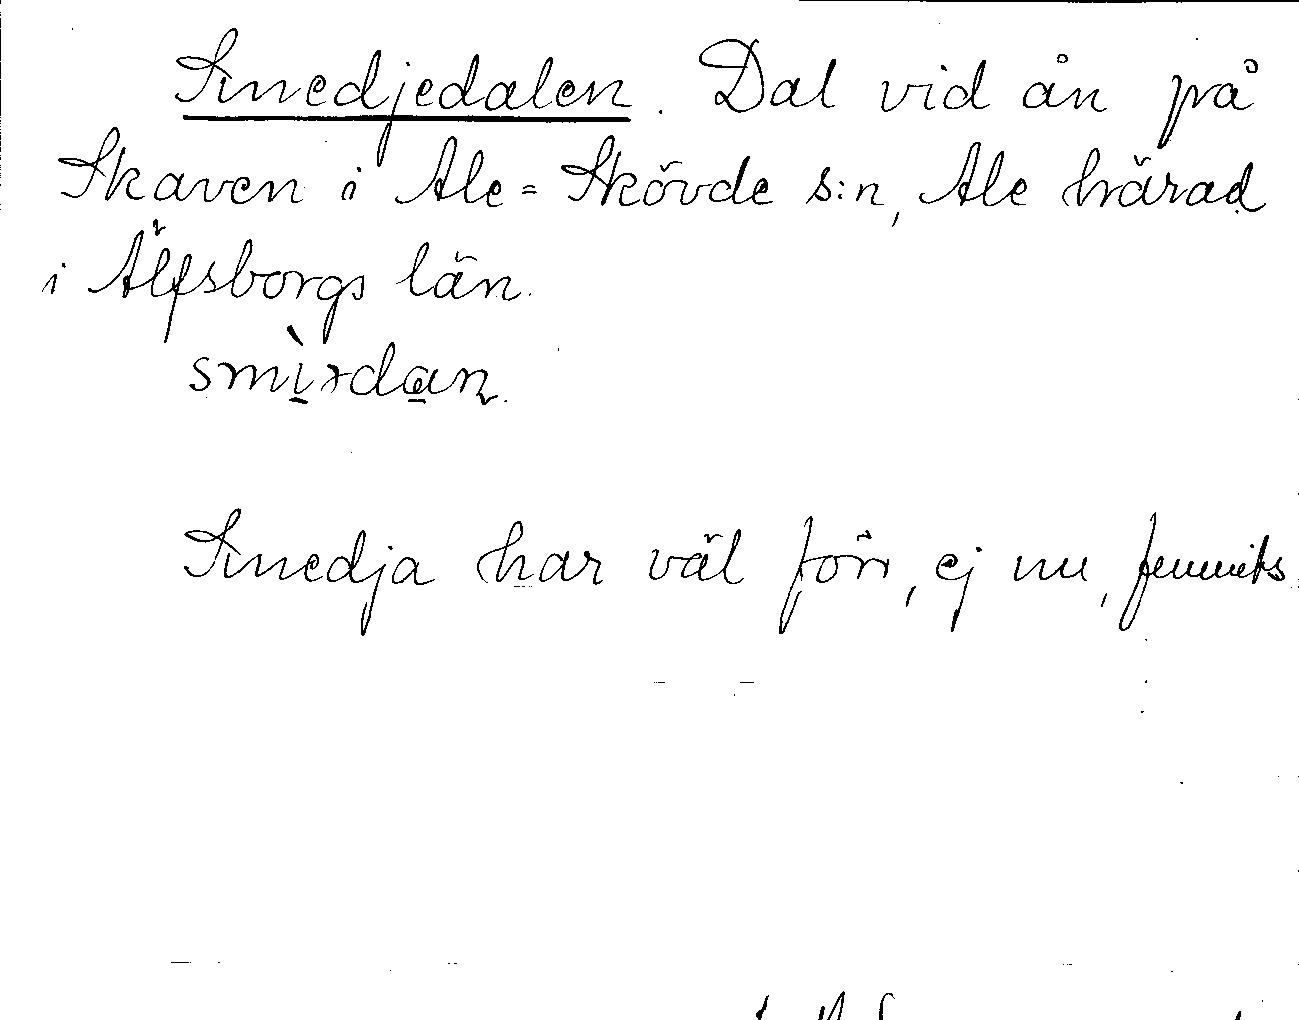 Smedjedalen. Dal vid ån på
Skaven i Ale=Skövde s:n, Ale härad
i Älfsborgs län.
Smedja har väl förr, ej nu, funnits